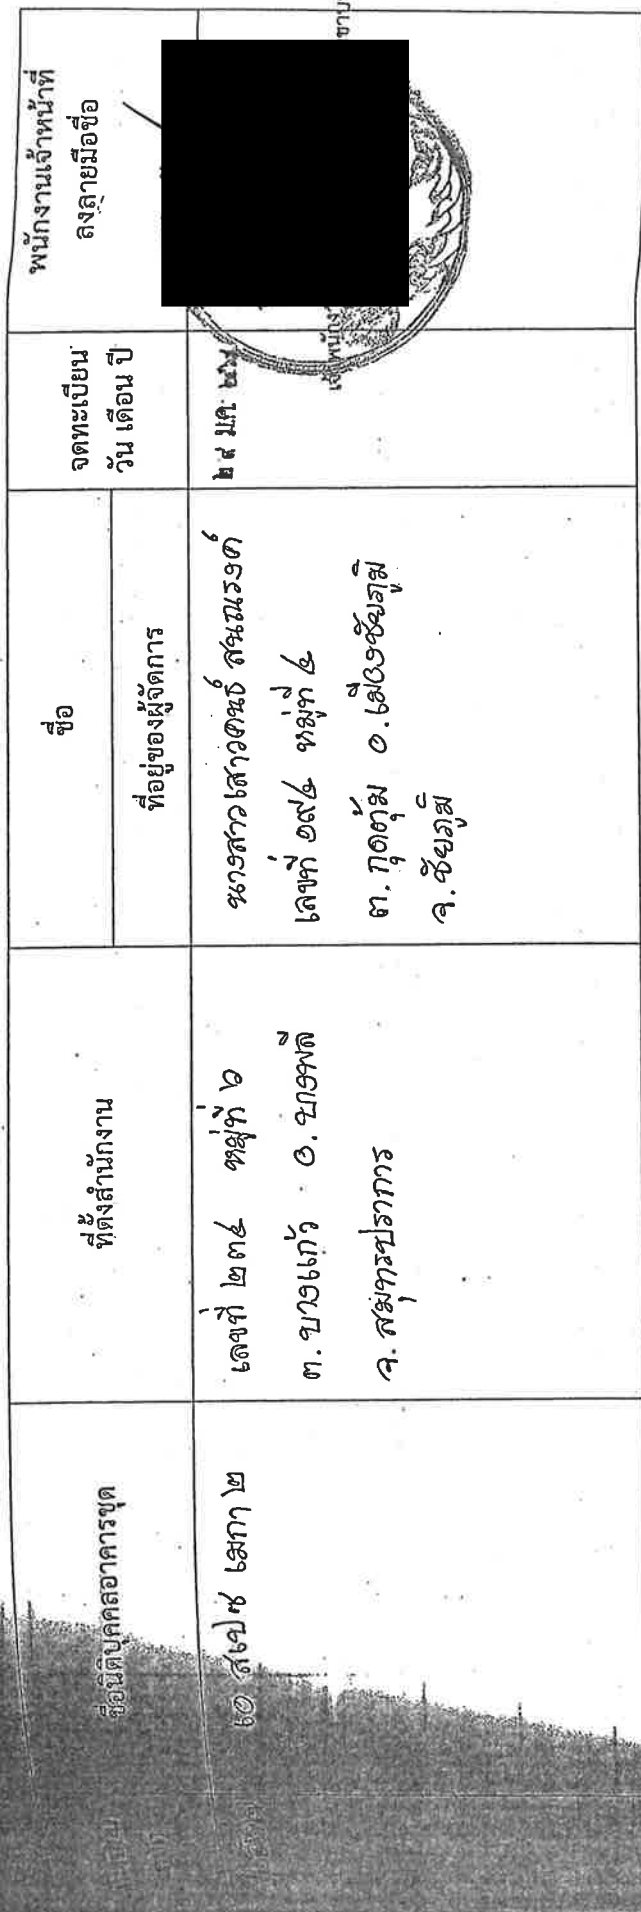 ชื่อนิติบุคคลอาคารชุด
ที่ตั้งสำนักงาน
ชื่อ
ที่อยู่ของผู้จัดการ
จดทะเบียน
วัน เดือน ปี
พนักงานเจ้าหน้าที่
ลงลายมือชื่อ
เอ สเปซ เมกา ๒
เลขที่ ๒๓๔ หมู่ที่ ๖
ต. บางแก้ว อ. บางพลี
จ. สมุทรปราการ
นางสาวเสาวคนธ์ สนณรงค์
เลขที่ ๑๙๔ หมู่ที่ ๔
ต. กุดตุ้ม อ. เมืองชัยภูมิ
จ. ชัยภูมิ
๒๙ ม.ค.